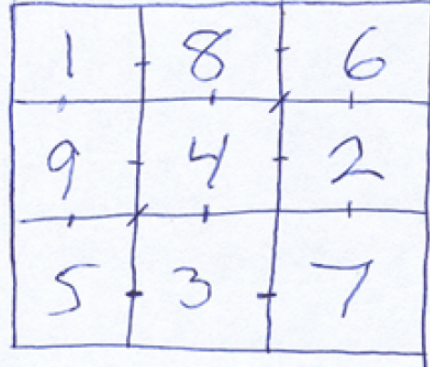 1 8 6
9 4 2
5 3 7